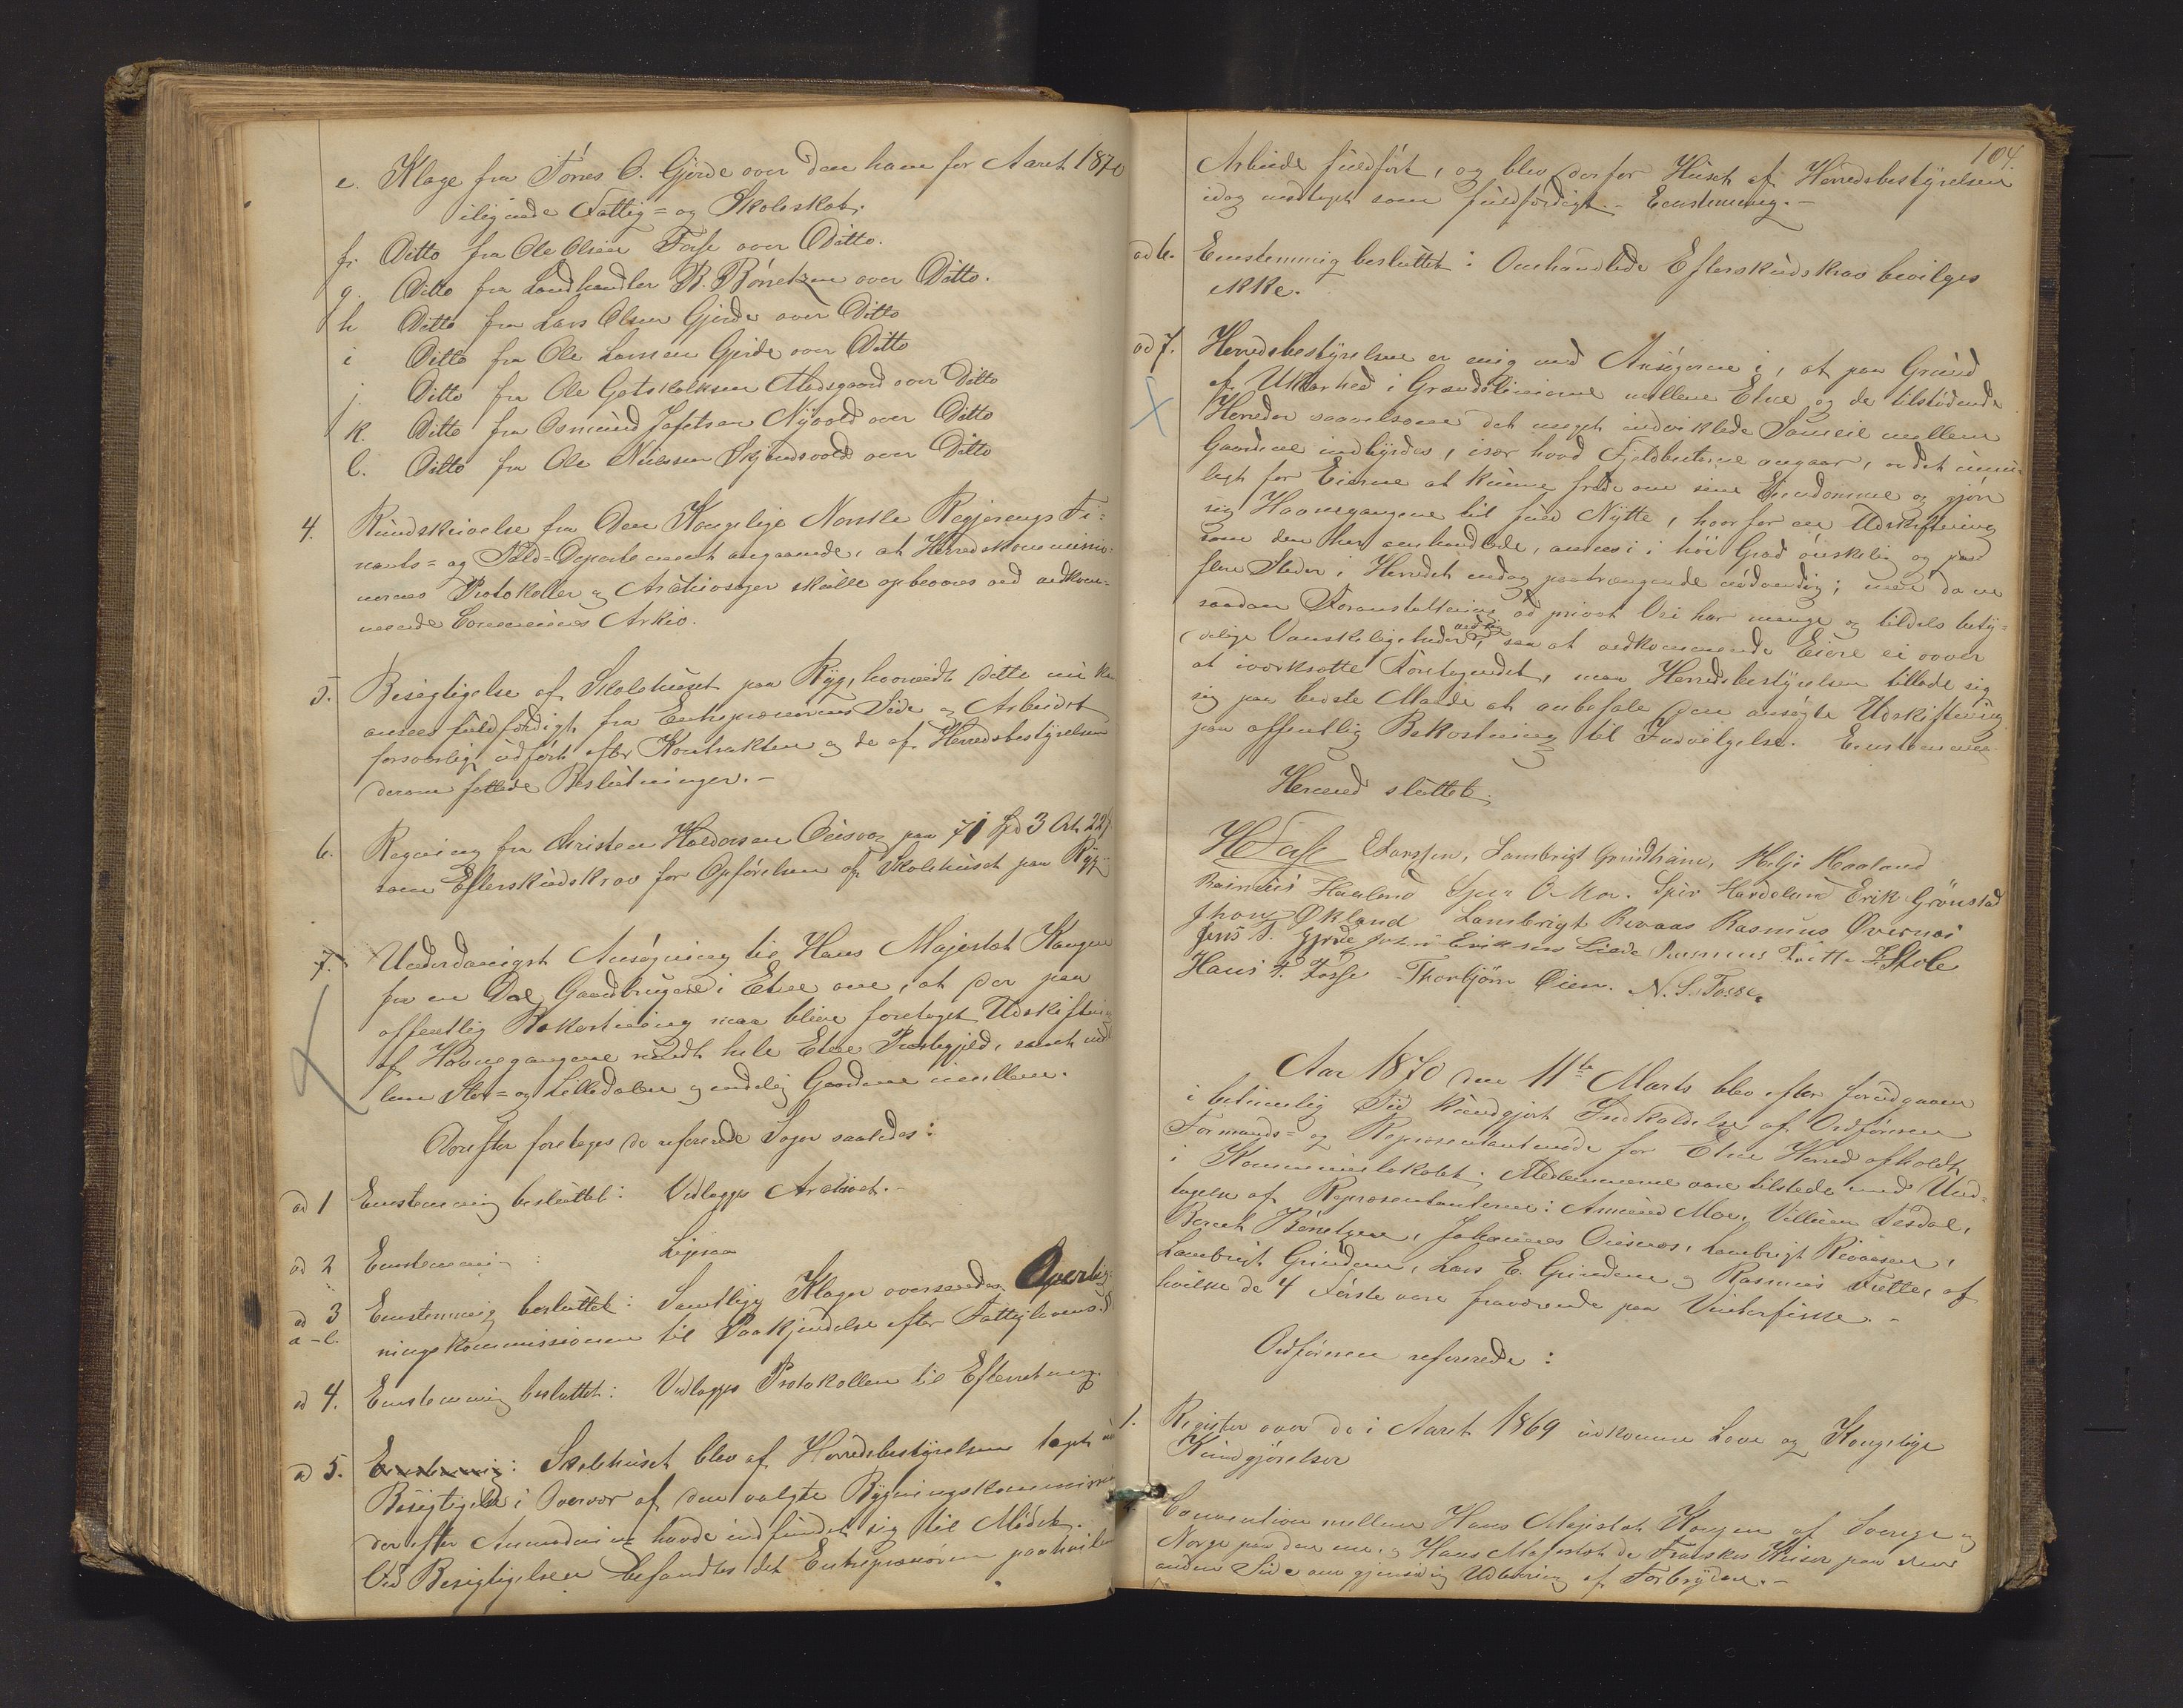 e. Klage fra Tórres O. Gjerde over den ham for Aaret 1870
ilignede Fattig= og Skoleskat.
f. Ditto fra Ole Olsen Fosse over Ditto.
g. Ditto fra Landhandler B. Börretzen over Ditto.
h Ditto fra Lars Olsen Gjerde over Ditto
i Ditto fra Ole Larsen Gjerde over Ditto
j. Ditto fra Ole Gotskalksen Medsgaard over Ditto
k. Ditto fra Osmund Jafetsen Nyvold over Ditto
l. Ditto fra Ole Nielssen Skjendsvold over Ditto
4. Rundskrivelse fra Den Kongelige Norske Regjerings Fi=
nants= og Told=Departement angaaende, at Herredskommissio=
nernes Protokoller og Archivsager skulle opbevares ved vedkom=
mende Communes Arkiv.
5. Besigtigelse af Skolehuset paa Ryg, hvorvidt dette nu kan
ansees fuldfærdigt fra Entreprenörens Side og Arbeidet
forsvarligt udfört efter Kontrakten og de af Herredsbestyrelsen
derom fattede Beslutninger.-
6. Regning fra Christen Haldorsen Öiesvog paa 71 Spd 3 Ort 22 s
som Efterskudskrav for Opförelsen af Skolehuset paa Ryg.-
7. Underdanigst Ansögning til Hans Majestæt Kongen
fra en Del Gaardbrugere i Etne om, at der paa
offentlig Bekostning maa blive foretaget Udskiftning
af Havnegangene rundt hele Etne Prestegjeld, samt mel
lem Stor= og Lilledalen og endelig Gaardene imellem.
Derefter foretages de refererede Sager saaledes:
ad 1 Eenstemmig besluttet: Vedlægges Archivet.-
ad 2 Eenstemmig : Ligesaa
ad 3 Eenstemmig besluttet: Samtlige Klager oversendes Overlig
a-l. ningskommissionen til Paakjendelse efter Fattiglovens
ad 4. Eenstemmig besluttet: Vedlægges Protokollen til Efterretning.
ad 5. Eenstemmig: Skolehuset blev af Herredsbestyrelsen taget i
Besigtigelse i Overvær af den valgte Bygningskommission
der efter Anmodning havde indfundet sig til Mödet.
Ved Besigtigelsen befandtes det Entreprenören paahvilende
104.
Arbeide fuldfört, og blev derfor Huset af Herredsbestyrelsen
idag modtaget som fuldfærdigt.- Eenstemmig.-
ad 6. Eenstemmig besluttet: Omhandlede Efterskudskrav bevilges
ikke.
ad 7. Herredsbestyrelsen er enig med Ansögerne i, at paa Grund
af Uklarhed i Grændselinierne mellem Etne og de tilstödende
Herreder saavelsom det meget indviklede Sameie mellem
Gaardene indbyrdes, især hvad Fjeldbeiterne angaar, er det umu=
ligt for Eierne at kunne frede om sine Eiendomme og gjöre
sig Havnegangene til fuld Nytte, hvorfor en Udskiftning
som den her omhandlede, ansees i höi Grad önskelig og paa
flere Steder i Herredet endog paatrængende nödvendig; men da en
saadan Foranstaltning ad privat Vei har mange og tildels bety=
delige Vanskeligheder ved sig, saa at vedkommende Eiere ei vover
at iværksætte Foretagendet, maa Herredsbestyrelsen tillade sig
sig paa bedste Maade at anbefale den ansögte Udskiftning
paa offentlig Bekostning til Indvilgelse. Eenstemmig.
Hermed sluttet.
HFosse ELarssen, Lambrigt Grindheim, Helje Haaland
Rasmus Haaland Iver O. Moe. Iver Hardeland Erik Grönstad
Jhon Ökland Lambrigt Revaas Rasmus Øvernæs
Jens T. Gjerde John Eriksen Lunde Rasmus Tvette F Stole
Hans T. Fosse Thorbjörn Öien. N. S. Fosse.
Aar 1870 den 11te Marts blev efter forudgaaen
i betimelig Tid kundgjort Indkaldelse af Ordföreren
Formands= og Repræsentantmöde for Etne Herred afholdt
i Kommunelokalet. Medlemmerne vare tilstede med Und=
tagelse af Repræsentanterne: Amund Moe, Villum Tesdal,
Bernt Börretzen, Johannes Öiesvog, Lambrigt Revaasen,
Lambrigt Grindem, Lars E. Grindem og Rasmus Tvette, af
hvilke de 4 Förste vare fraværende paa Vinterfiske.-
Ordföreren refererede:
1. Register over de i Aaret 1869 udkomne Love og Kongelige
Kundgjörelser
Convention mellem Hans Majestæt Kongen af Sverige og
Norge paa den ene, og Hans Majestæt de Franskes Keiser paa den
anden Side om gjensidig Udlevering af Forbrydere.-